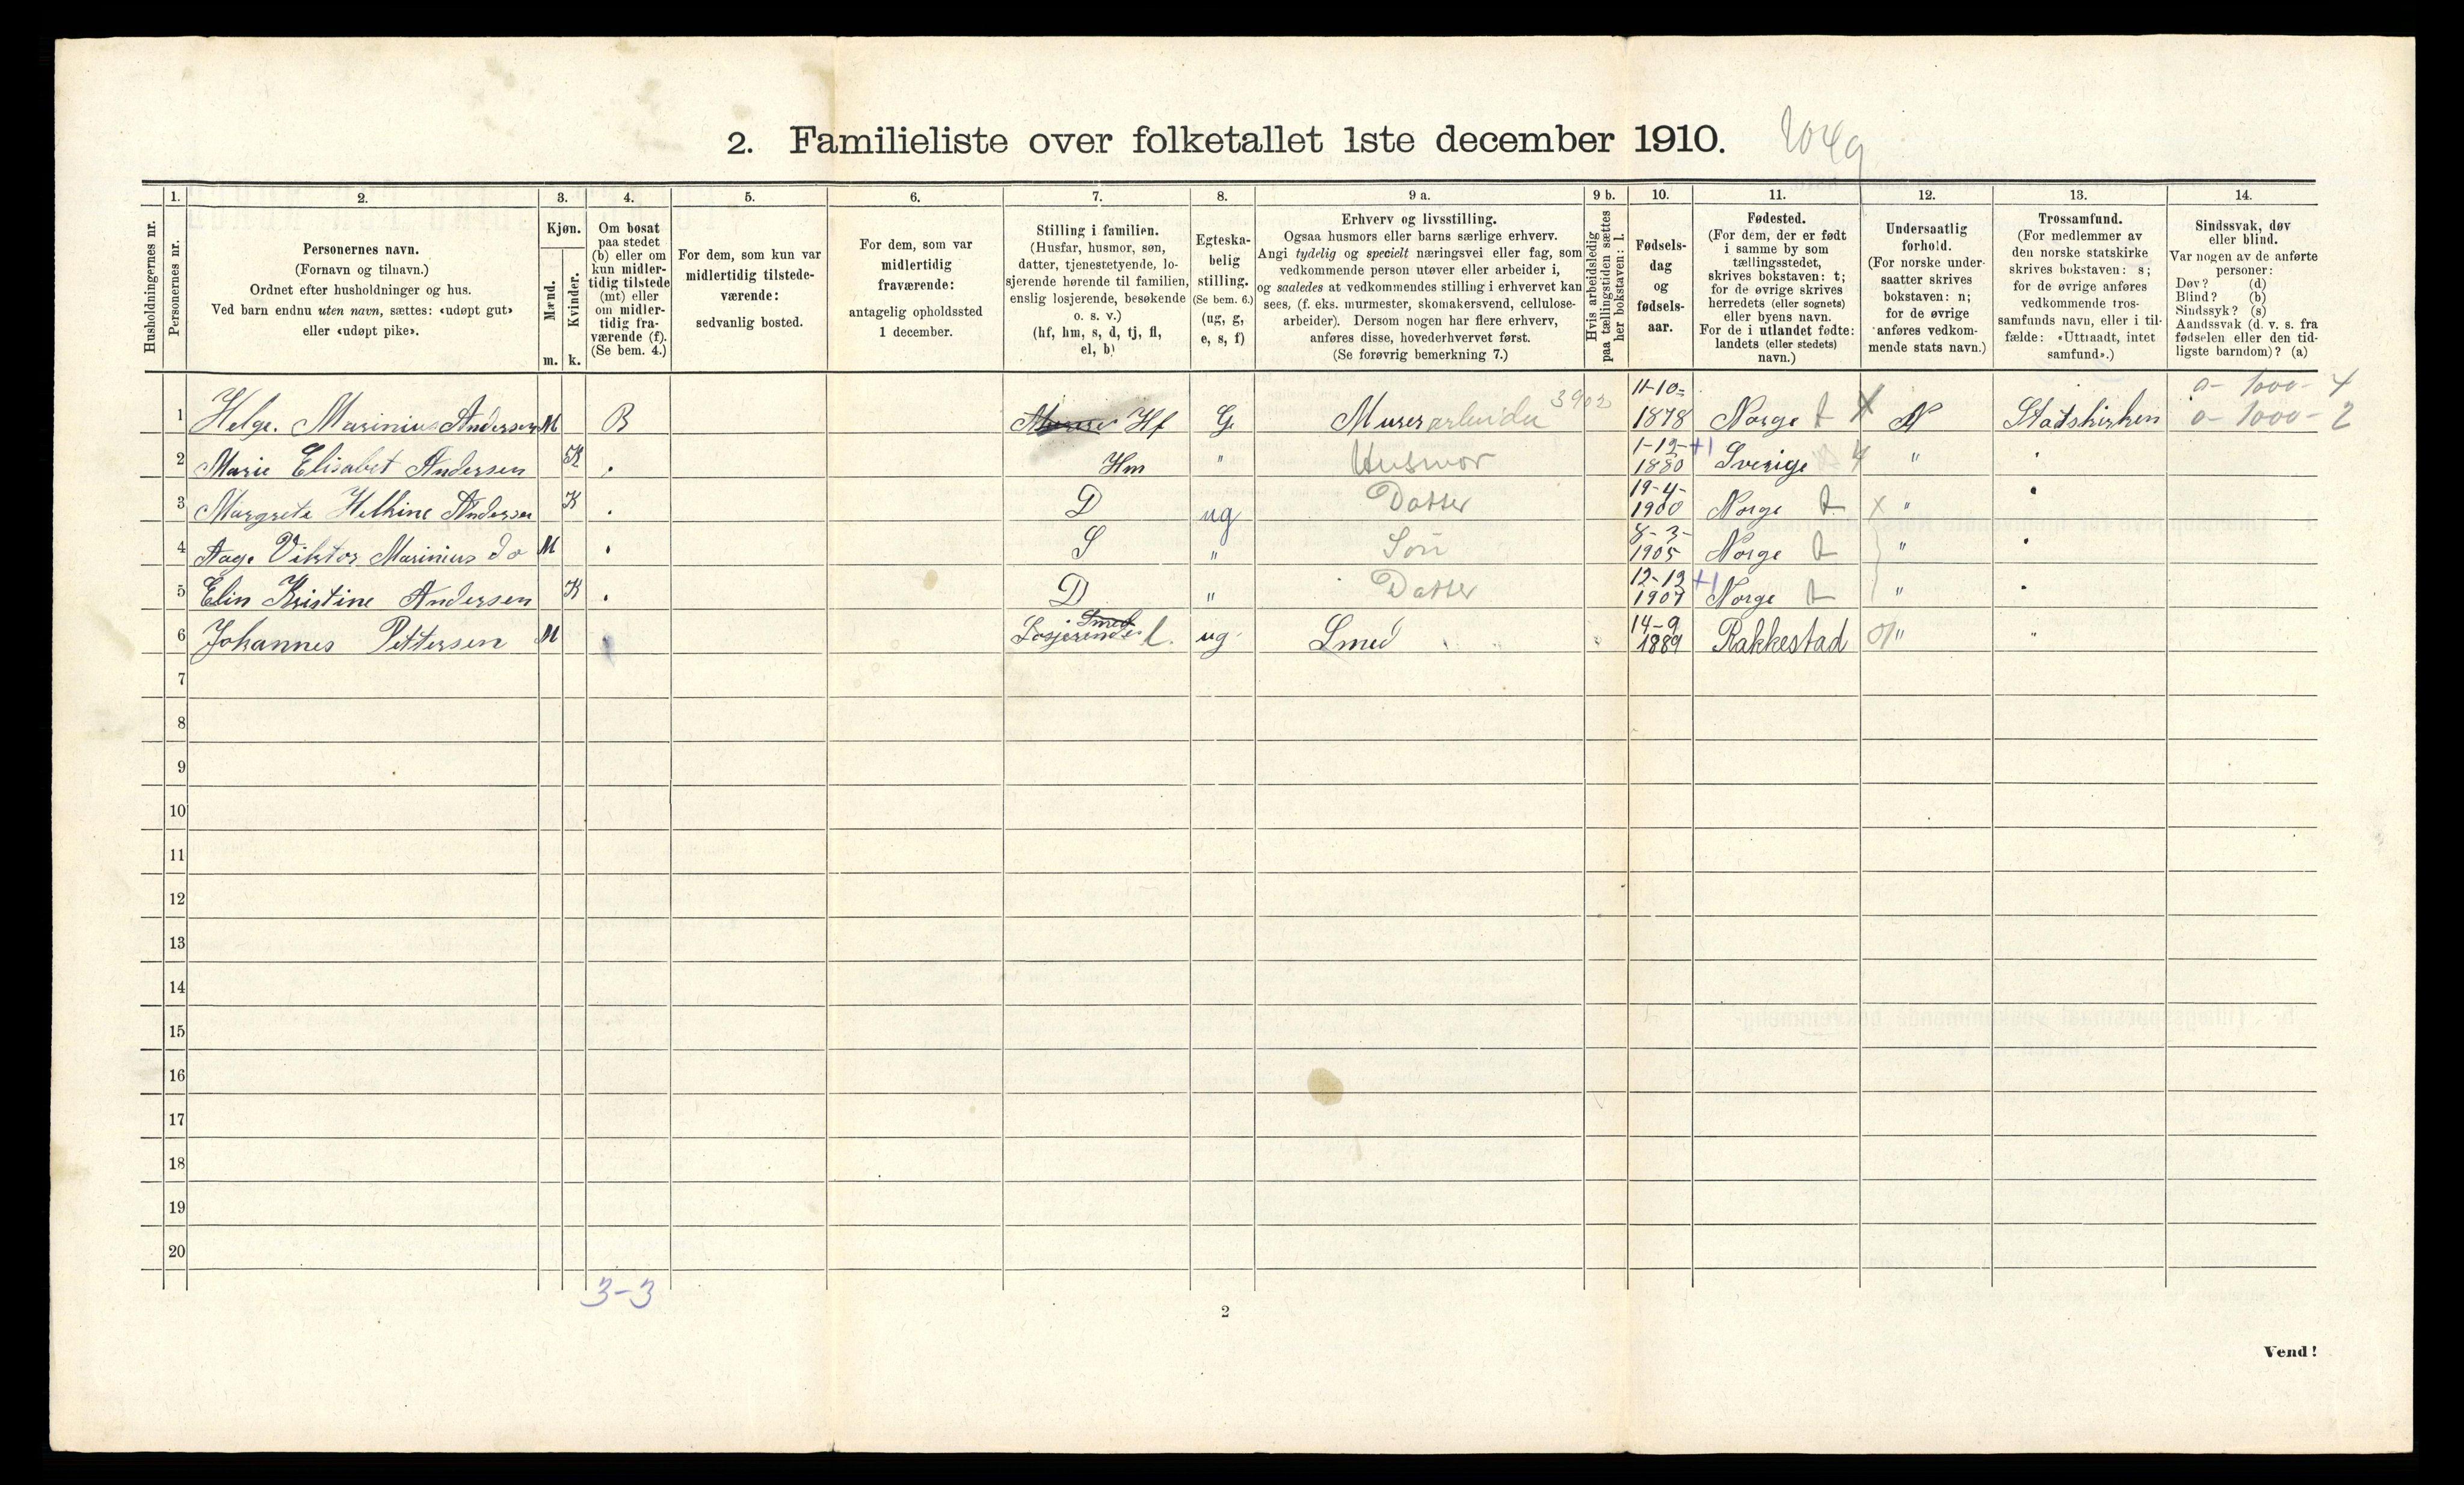 2. Familieliste over folketallet 1ste december 1910.
Husholdningernes nr.
1.
Personernes nr.
2.
Personernes navn.
(Fornavn og tilnavn.)
Ordnet efter husholdninger og hus.
Ved barn endnu uten navn, sættes: «udøpt gut»
eller «udøpt pike».
3.
Kjøn.
Mænd.
Kvinder.
m. k.
4.
Om bosat
paa stedet
(b) eller om
kun midler-
tidig tilstede
(mt) eller
om midler-
tidig fra-
værende (f).
(Se bem. 4.)
5.
For dem, som kun var
midlertidig tilstede-
værende:
sedvanlig bosted.
6.
For dem, som var
midlertidig
fraværende:
antagelig opholdssted
1 december.
7.
Stilling i familien.
(Husfar, husmor, søn,
datter, tjenestetyende, lo-
sjerende hørende til familien,
enslig losjerende, besøkende
o. s. v.)
(hf, hm, s, d, tj, fl,
el, b)
8.
Egteska-
belig
stilling.
(Se bem. 6.)
(ug, g,
e, s, f)
9 a.
Erhverv og livsstilling.
Ogsaa husmors eller barns særlige erhverv.
Angi tydelig og specielt næringsvei eller fag, som
vedkommende person utøver eller arbeider i,
og saaledes at vedkommendes stilling i erhvervet kan
sees, (f. eks. murmester, skomakersvend, cellulose-
arbeider). Dersom nogen har flere erhverv,
anføres disse, hovederhvervet først.
(Se forøvrig bemerkning 7.)
9 b.
Hvis arbeidsledig
paa tællingstiden sættes
her bokstaven: l.
10.
Fødsels-
dag
og
fødsels-
aar.
11.
Fødested.
(For dem, der er født
i samme by som
tællingsstedet,
skrives bokstaven: t;
for de øvrige skrives
herredets (eller sognets)
eller byens navn.
For de i utlandet fødte:
landets (eller stedets)
navn.)
12.
Undersaatlig
forhold.
(For norske under-
saatter skrives
bokstaven: n;
for de øvrige
anføres vedkom-
mende stats navn.)
13.
Trossamfund.
(For medlemmer av
den norske statskirke
skrives bokstaven: s;
for de øvrige anføres
vedkommende tros-
samfunds navn, eller i til-
fælde: «Uttraadt, intet
samfund».)
14.
Sindssvak, døv
eller blind.
Var nogen av de anførte
personer:
Døv? (d)
Blind? (b)
Sindssyk? (s)
Aandssvak (d. v. s. fra
fødselen eller den tid-
ligste barndom)? (a)
0 - 1000 - 4
1 Helge. Marinius Andersen M B Hf G Murer arbeider 3902 11-10- 1878 Norge t X N Statskirken 0 - 1000 - 2
2 Marie Elisabet Andersen K . Hm " Husmor 1-12- +1 1880 Sverige 4 " "
3 Margrete Helhine Andersen K . D ug Datter 19-4- 1900 Norge t X " "
4 Aage Viktor Marinius do M . S " Søn 8-3- 1905 Norge t " "
5 Elin Kristine Andersen K . D " Datter 12-12 +1 1907 Norge t " "
6 Johannes Pettersen M Losjerende l. ug Smed 14-9 1889 Rakkestad " "
7
8
9
10
11
12
13
14
15
16
17
18
19
20
3-3
2
Vend!